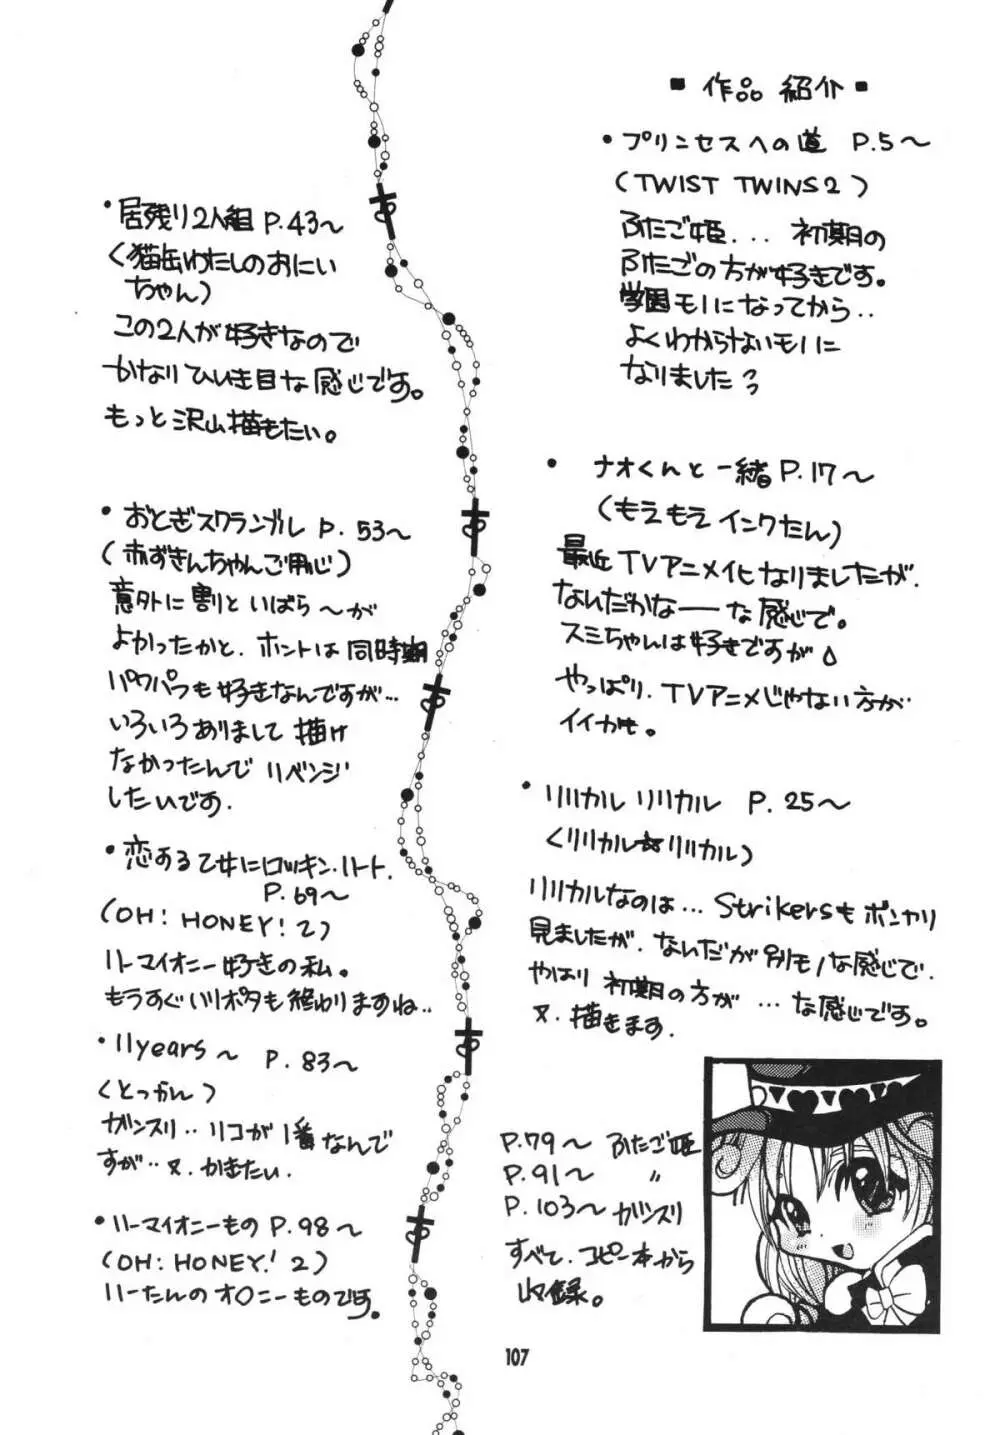 ■ 作品 紹介 ■
・プリンセスへの道 P.5〜
(TWIST TWINS2)
ふたご姫... 初期の
ふたごの方が好きです。
学園モノになってから..
よくわからないモノに
なりました
・ナオくんと一緒 P.17〜
(もえもえインクたん)
最近TVアニメイヒなりましたが、
なんだかなーな感じで。
スミちゃんは好きですが
やっぱり、TVアニメじゃない方が
イイかも。
・リリカルリリカル P. 25〜
(リリカル☆リリカル)
リリカルなのは... Strikersもボンヤリ
見ましたが、なんだが別モノな感じで、
やはり初期の方が ...な感じです。
又、描きます.
P.79〜 ふたご姫
P.91〜 〃
P.103〜 ガンスリ
すべて、コピー本から
収録。
・居残り2人組 P.43〜
(猫缶わたしのおにい
ちゃん)
この2人が好きなので
かなりひいき目な感じです。
もっと沢山描きたい。
・おとぎスクランブル P. 53〜
(赤ずきんちゃんご用心)
意外に割といばら〜が
よかったかと、ホントは同時期
パワパフも好きなんですが...
いろいろありまして描け
なかったんでリベンジ
したいです.
・恋する乙女にロッキン・ハート.
P.69〜
(OH! HONEY! 2)
ハーマイオニー好きの私。
もうすぐハリポタも終わりますね..
・11years〜 P.83〜
(とっかん)
ガンスリ.. リコが1番なんで
すが.. 又、かきたい.
・ハーマイオニーもの P.98〜
(OH! HONEY! 2)
ハーたんのオ〇ニーものです.
107